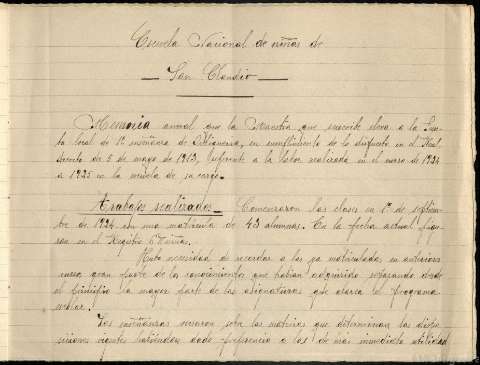 Escuela Nacional de niñas de
San Claudio
Memoria anual que la Maestra que suscribe eleva a la Jun-
ta local de 1ª enseñanza de Ortigueira, en cumplimiento de lo dispuesto en el Real
decreto de 5 de mayo de 1913, referente a la labor realizada en el curso de 1924
a 1925 en la escuela de su cargo.
Trabajos realizados_ Comenzaron las clases en 1º de septiem-
bre de 1924 con una matrícula de 43 alumnas. En la fecha actual figu-
ran en el Registro
Hubo necesidad de recordar a las ya matriculadas en anteriores
cursos gran parte de los conocimientos que habían adquirido repasando desde
el principio la mayor parte de las asignaturas que abarca el programa
escolar.
Las enseñanzas versaron sobre las materias que determinan las dispo-
siciones vigentes habiéndose dado preferencia a las de más inmediata utilidad